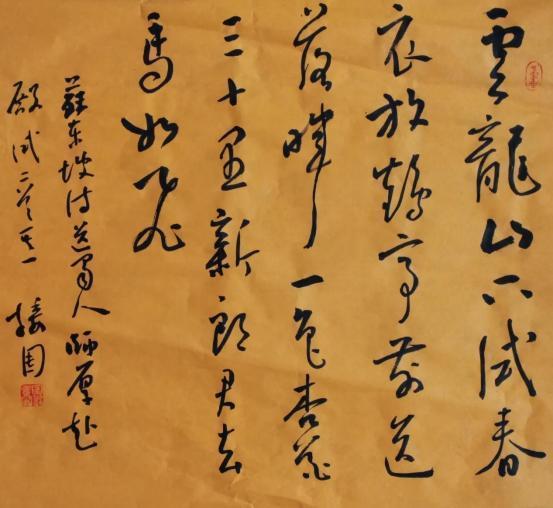 雲龍山下試春
衣放鶴亭前送
落暉一色杏花
三十里新郎君去
馬如飛
蘇東坡詩送蜀人師厚赴
殿試二首其一